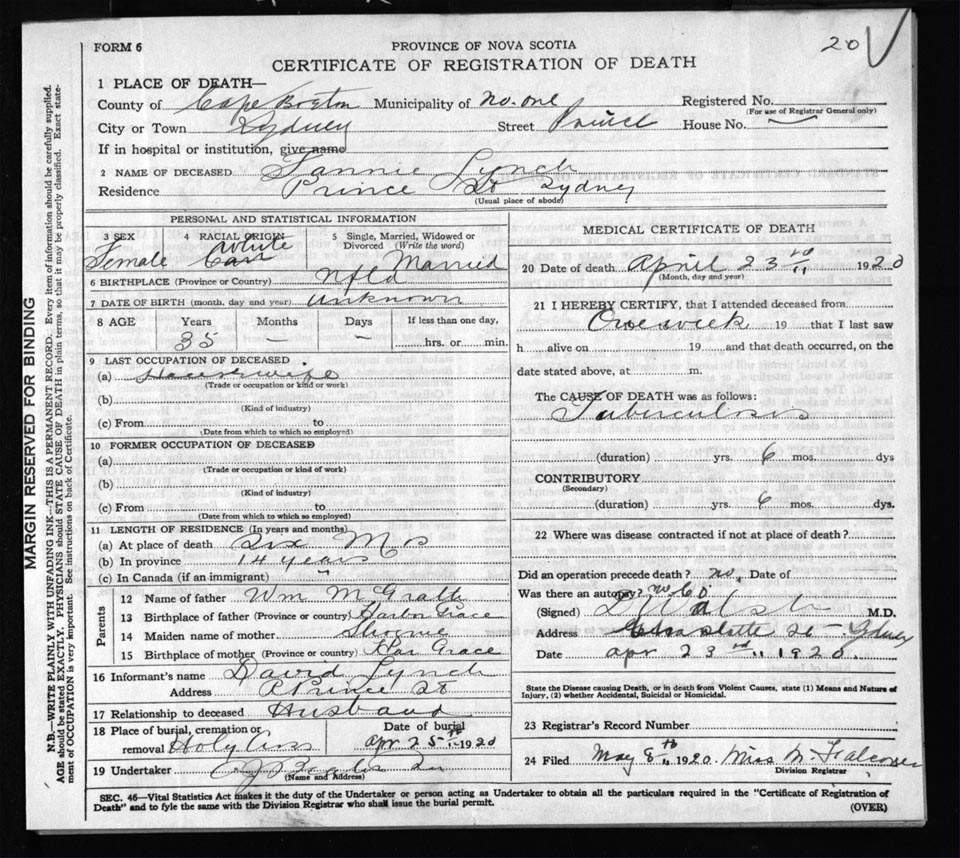 FORM 6
PROVINCE OF NOVA SCOTIA
20
CERTIFICATE OF REGISTRATION OF DEATH
1 PLACE OF DEATH—
County of Cape Breton Municipality of No. one Registered No.
(For use of Registrar General only)
City or Town Sydney Street Prince House No.
If in hospital or institution, give name
2 NAME OF DECEASED Fannie Lynch
Residence Prince St Sydney
(Usual place of abode)
PERSONAL AND STATISTICAL INFORMATION
3 SEX 4 RACIAL ORIGIN 5 Single, Married, Widowed or Divorced (Write the word)
Female White Married
6 BIRTHPLACE (Province or Country) Nfld
7 DATE OF BIRTH (month, day and year) unknown
8 AGE Years Months Days If less than one day,
35 — — hrs. or min.
9 LAST OCCUPATION OF DECEASED
(a) Housewife
(Trade or occupation or kind or work)
(b)
(Kind of industry)
(c) From to
(Date from which to which so employed)
10 FORMER OCCUPATION OF DECEASED
(a)
(Trade or occupation or kind of work)
(b)
(Kind of industry)
(c) From to
(Date from which to which so employed)
11 LENGTH OF RESIDENCE (In years and months)
(a) At place of death Six Mos
(b) In province 14 years
(c) In Canada (if an immigrant)
Parents
12 Name of father Wm McGrath
13 Birthplace of father (Province or country) Harbor Grace
14 Maiden name of mother
15 Birthplace of mother (Province or country) Har Grace
16 Informant's name David Lynch
Address Prince St
17 Relationship to deceased Husband
18 Place of burial, cremation or removal Holy Cross
Date of burial Apr 25th 1920
19 Undertaker
(Name and Address)
MEDICAL CERTIFICATE OF DEATH
20 Date of death April 23rd 1920
(Month, day and year)
21 I HEREBY CERTIFY, that I attended deceased from
One week 19 that I last saw
h alive on 19 and that death occurred, on the
date stated above, at m.
The CAUSE OF DEATH was as follows:
Tuberculosis
(duration) yrs. 6 mos. dys
CONTRIBUTORY
(Secondary)
(duration) yrs. 6 mos. dys.
22 Where was disease contracted if not at place of death?
Did an operation precede death? no. Date of
Was there an autopsy? no
(Signed) D Walsh M.D.
Address Charlotte St Sydney
Date apr 23rd 1920.
State the Disease causing Death, or in death from Violent Causes, state (1) Means and Nature of
Injury, (2) whether Accidental, Suicidal or Homicidal.
23 Registrar's Record Number
24 Filed May 8th 1920. Miss M. Falconer
Division Registrar
SEC. 46—Vital Statistics Act makes it the duty of the Undertaker or person acting as Undertaker to obtain all the particulars required in the "Certificate of Registration of
Death" and to fyle the same with the Division Registrar who shall issue the burial permit.
(OVER)
MARGIN RESERVED FOR BINDING
N.B.—WRITE PLAINLY WITH UNFADING INK—THIS IS A PERMANENT RECORD. Every item of information should be carefully supplied.
AGE should be stated EXACTLY. PHYSICIANS should STATE CAUSE OF DEATH in plain terms, so that it may be properly classified. Exact state-
ment of OCCUPATION is very important. See instructions on back of Certificate.